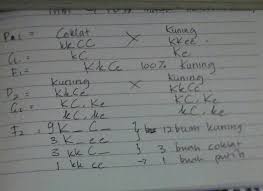 Coklat Kuning
kkCC X KKcc
kC Kc
KkCc 100% kuning
kuning X Kuning
KkCc KkCc
KC, Kc KC, Kc
kC, kc kC, kc
F2 9K_C_
3 K_cc 12 buah kuning
3 kkC_ 3 buah coklat
1 kkcc → 1 buah putih